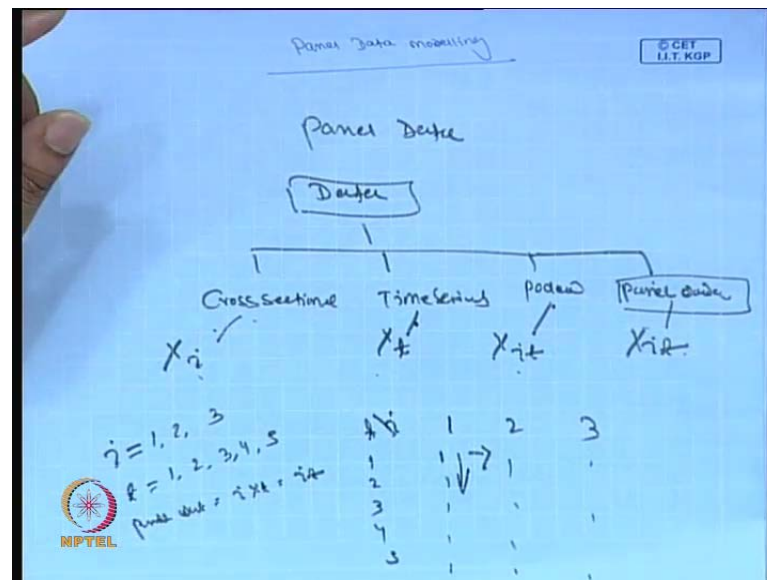 Panel Data modelling
© CET
I.I.T. KGP
Panel Data
Data
Cross Sectional Time Series Pooled Panel data
Xi Xt Xit Xit
i = 1, 2, 3
t = 1, 2, 3, 4, 5
panel data = i x t = it
t\i 1 2 3
1
2
3
4
5
NPTEL